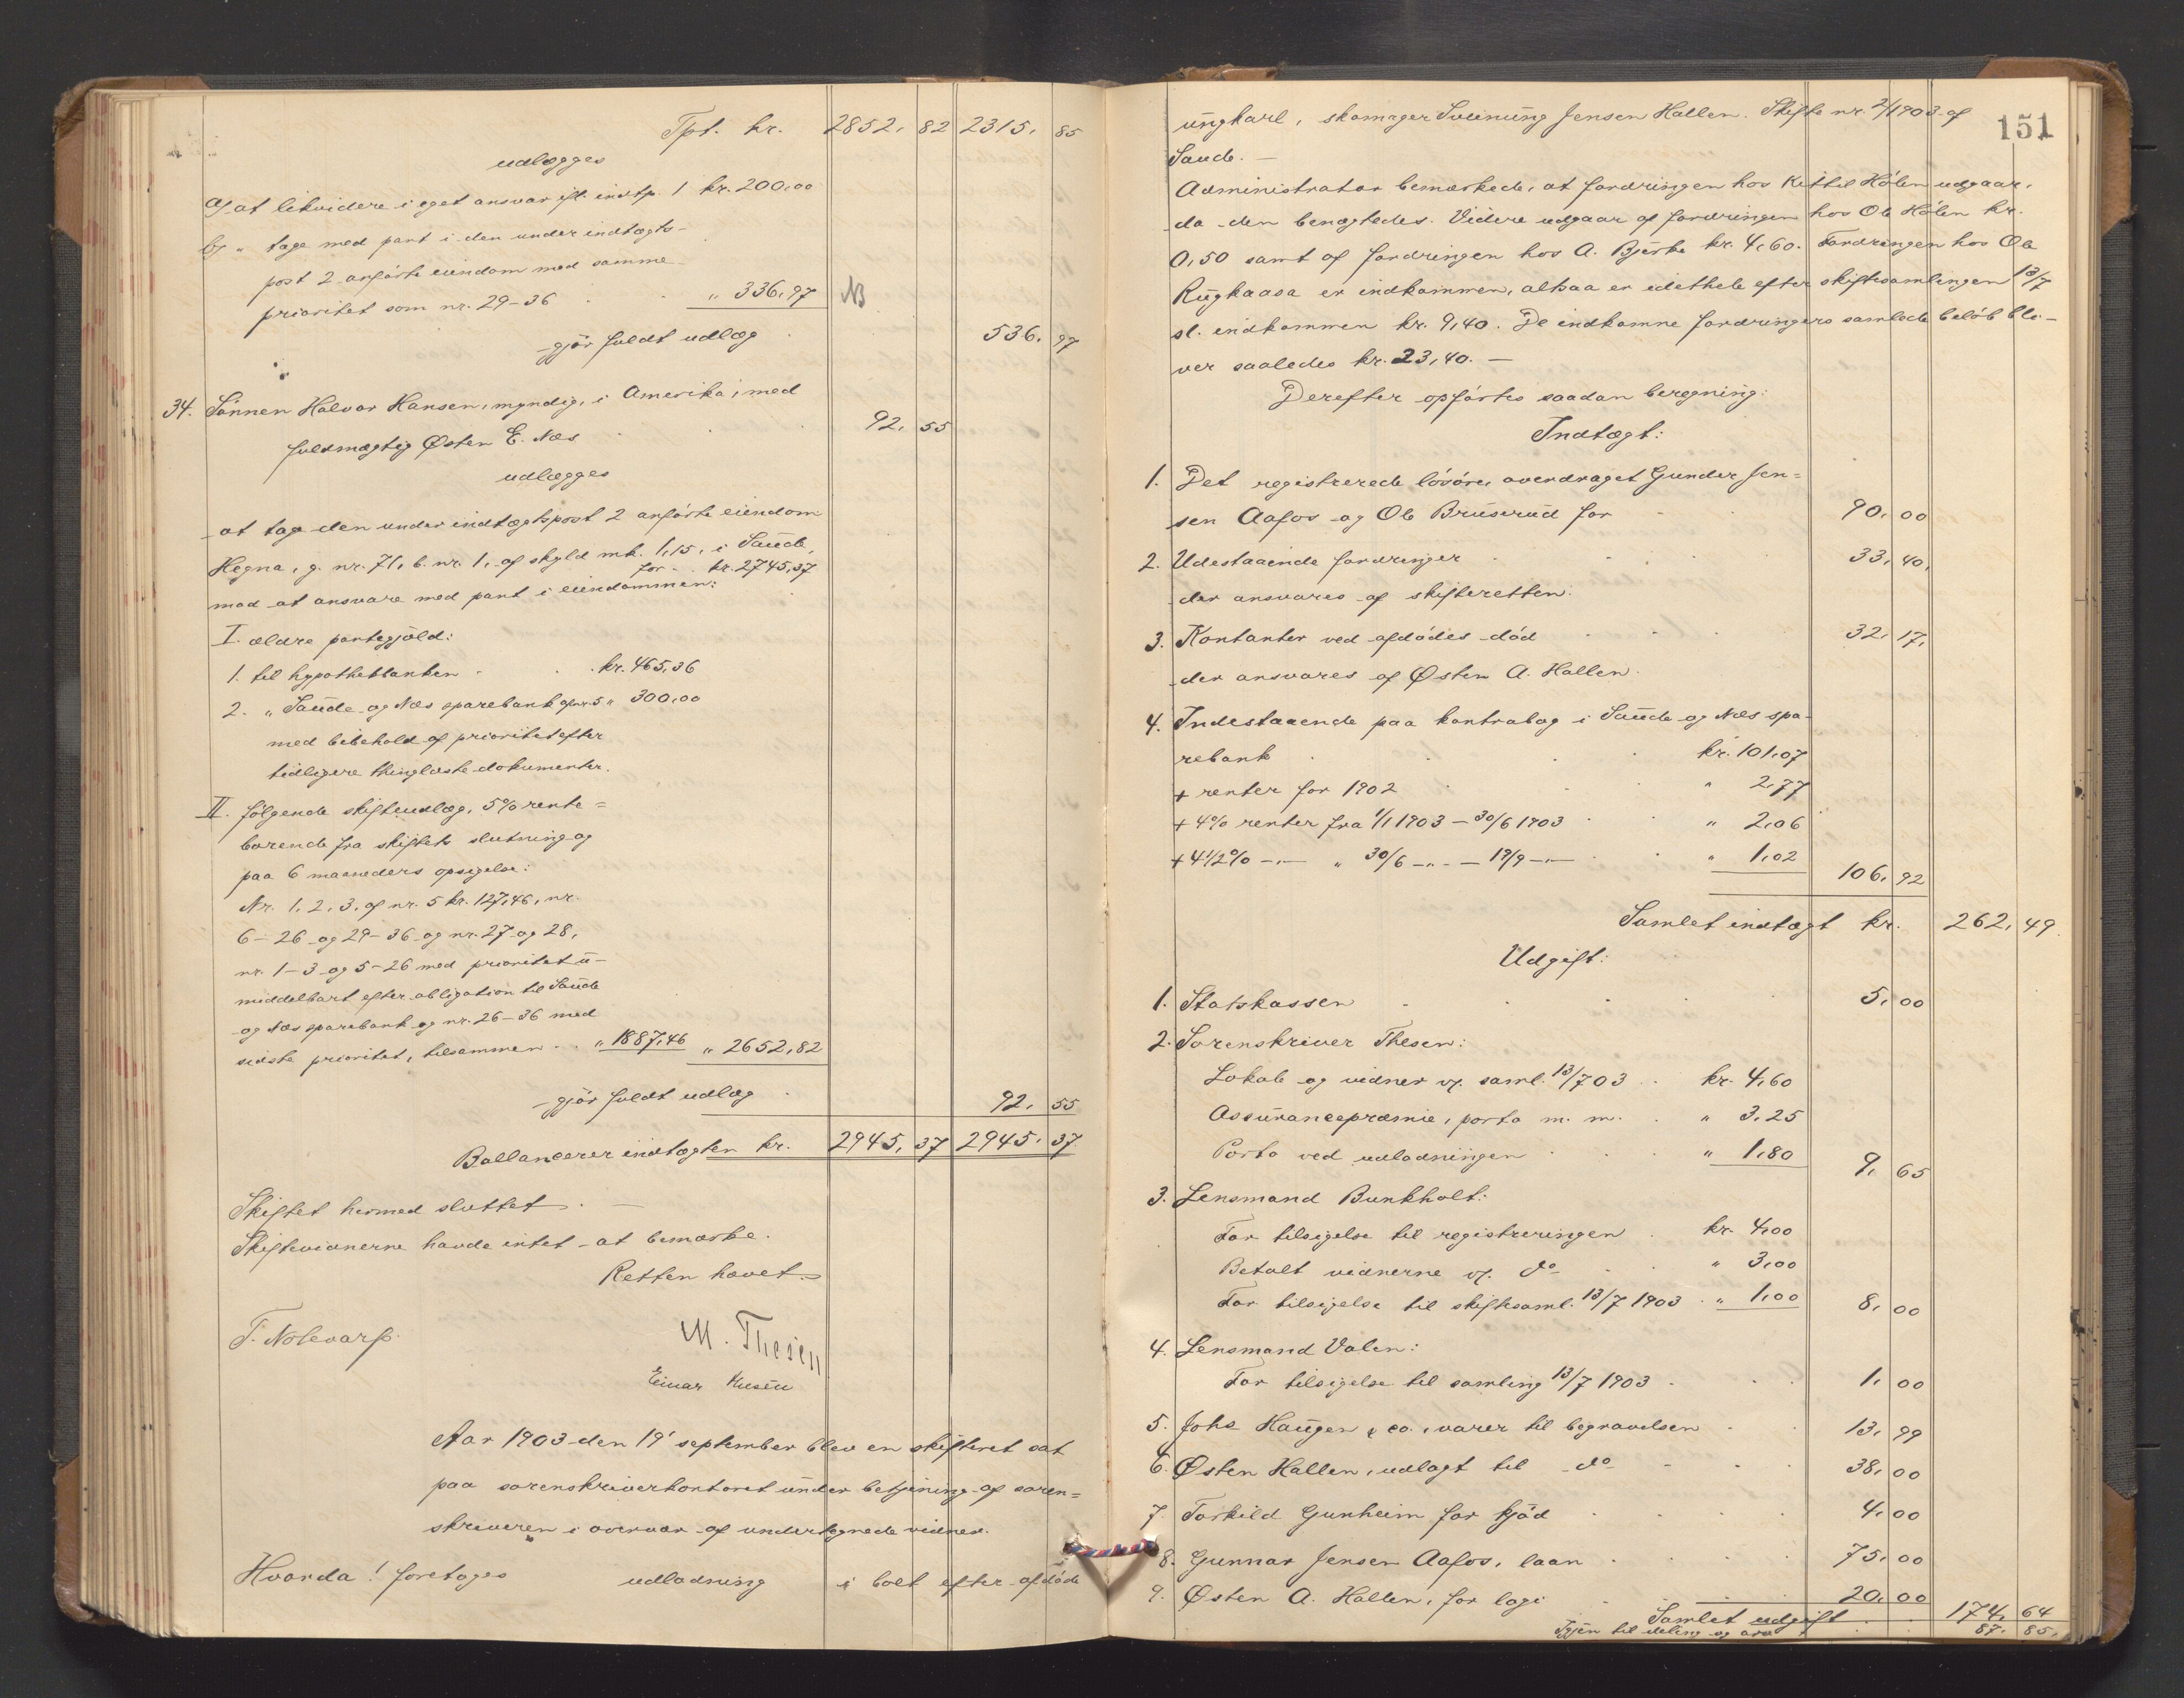 Tpt. kr. 2852, 82 2315, 85
udlægges
a) at likvidere i eget ansvar ifl. indtp. 1 kr. 200,00
b) " tage med pant i den under indtægts-
post 2 anførte eiendom med samme
prioritet som nr. 29-36 " 336,97 NB
gjør fuldt udlæg 536, 97
34. Sønnen Halvor Hansen, myndig, i Amerika, med
fuldmægtig Østen E. Næs 92, 55
udlægges
at tage den under indtægtspost 2 anførte eiendom
Hegna, g. nr. 71, b. nr. 1, af skyld mk. 1,15, i Saude,
for kr. 2745,37
mod at ansvare med pant i eiendommen:
I. ældre pantegjæld:
1. til hypothekbanken kr. 465,36
2. " Saude og Næs sparebank af nr 5 " 300,00
med bibehold af prioritet efter
tidligere thinglæste dokumenter.
II. følgende skifteudlæg, 5% rente=
bærende fra skiftets slutning og
paa 6 maaneders opsigelse:
Nr. 1, 2, 3, af nr. 5 kr. 127,46, nr.
6-26 og 29-36 og nr. 27 og 28,
nr. 1-3 og 5-26 med prioritet u-
middelbart efter obligation til Saude
og Næs sparebank og nr. 26-36 med
sidste prioritet, tilsammen " 1887,46 " 2652,82
gjør fuldt udlæg 92, 55
Ballancerer indtægten kr. 2945, 37 2945, 37
Skiftet hermed sluttet. -
Skiftevidnerne havde intet at bemærke.
Retten hævet.
T. Nolevarp. M. Thesen
Einar
Aar 1903 den 19' september blev en skifteret sat
paa sorenskriverkontoret under betjening af soren=
skriveren i overvær af undertegnede vidner.
Hvorda! foretoges udlodning i boet efter afdøde
151
ungkarl, skomager Sveinung Jensen Hallen. Skifte nr. 2/1903 af
Saude. -
Administrator bemærkede, at fordringen hos Kittil Hølen udgaar,
da den benægtedes. Videre udgaar af fordringen hos Ole Hølen kr.
0,50 samt af fordringen hos A. Bjerke kr. 4,60. Fordringen hos Ole
Rugkaasa er indkommen, altsaa er idethele efter skiftesamlingen 13/7
sl. indkommen kr. 9,40. De indkomne fordringers samlede beløb bli-
ver saaledes kr. 23,40. -
Derefter opførtes saadan beregning:
Indtægt:
1. Det registrerede løsøre, overdraget Gunder Jen=
sen Aafos og Ole Bruserud for 90, 00
2. Udestaaende fordringer 33, 40,
der ansvares af skifteretten.
3. Kontanter ved afdødes død 32, 17,
der ansvares af Østen A. Hallen.
4. Indestaaende paa kontrabog i Saude og Næs spa-
rebank kr. 101,07
+ renter for 1902 " 2,77
+ 4% renter fra 1/1 1903 - 30/6 1903 " 2,06
+ 4 1/2% -"- " 30/6 -"- - 19/9 -"- " 1,02 106, 92
Samlet indtægt kr. 262, 49
Udgift:
1. Statskassen 5, 00
2. Sorenskriver Thesen:
Lokale og vidner v. saml. 13/7 03 kr. 4,60
Assurancepræmie, porto m. m. " 3,25
Porto ved udlodningen " 1,80 9, 65
3. Lensmand Bunkholt:
For tilsigelse til registreringen kr. 4,00
Betalt vidnerne v. do " 3,00
For tilsigelse til skiftesaml. 13/7 1903 " 1,00 8, 00
4. Lensmand Valen:
For tilsigelse til samling 13/7 1903 1, 00
5. Johs Haugen & co., varer til begravelsen 13, 99
6. Østen Hallen, udlagt til do 38, 00
7. Torkild Gunheim for kjød 4, 00
8. Gunnar Jensen Aafos, laan 75, 00
9. Østen A. Hallen, for logi 20, 00
Samlet udgift 174, 64
Igjen til deling og arv 87, 85,